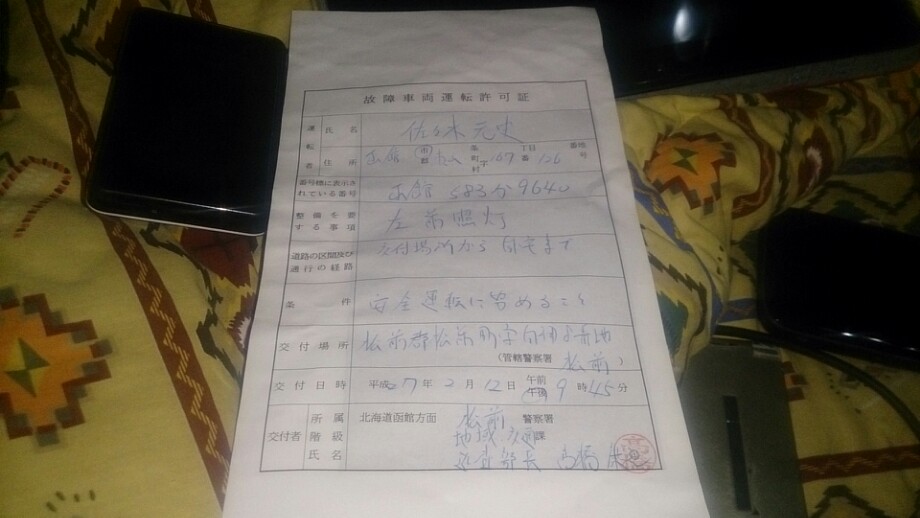 故障車両運転許可証
運転者 氏名 佐々木元史
住所 函館 市郡 条町村 字 169 丁目番 126 番地号
番号標に表示されている番号 函館 583 か 9640
整備を要する事項 左前照灯
道路の区間及び通行の経路 交付場所から自宅まで
条件 安全運転に努めること
交付場所 松前郡松前町字
(管轄警察署 松前)
交付日時 平成27年2月12日 午前午後 9時45分
交付者 所属 北海道函館方面 松前 警察署
階級 地域交通課
氏名 巡査部長 高橋